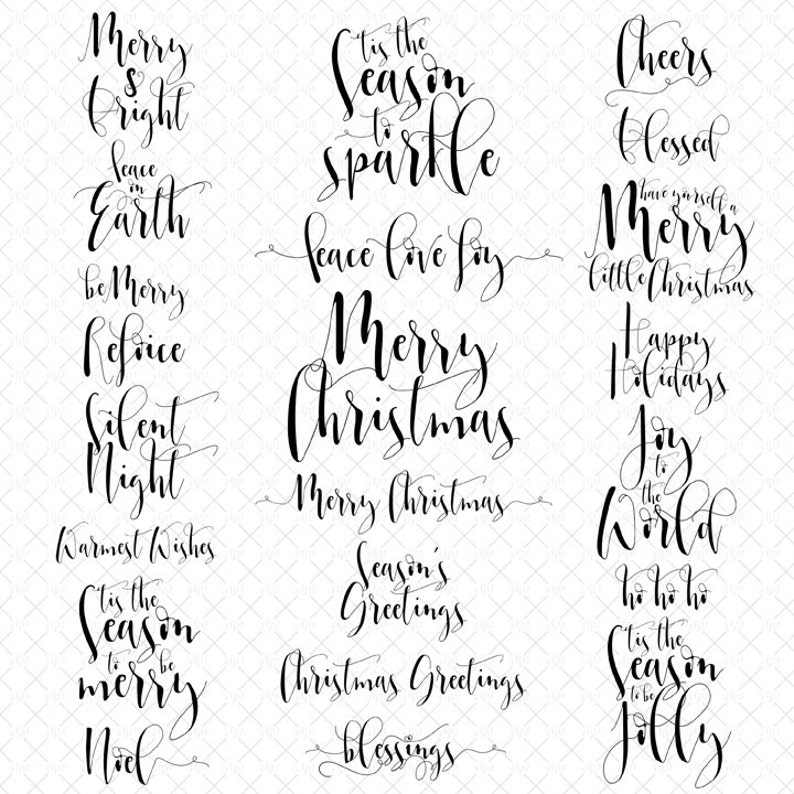 Merry
&
bright
peace
on
Earth
be Merry
Rejoice
Silent
Night
Warmest Wishes
'tis the
Season
to be
merry
Noel
'tis the
Season
to
sparkle
peace love joy
Merry
Christmas
Merry Christmas
Season's
Greetings
Christmas Greetings
blessings
Cheers
blessed
have yourself a
Merry
little Christmas
Happy
Holidays
Joy
to
the
World
ho ho ho
'tis the
Season
to be
Jolly